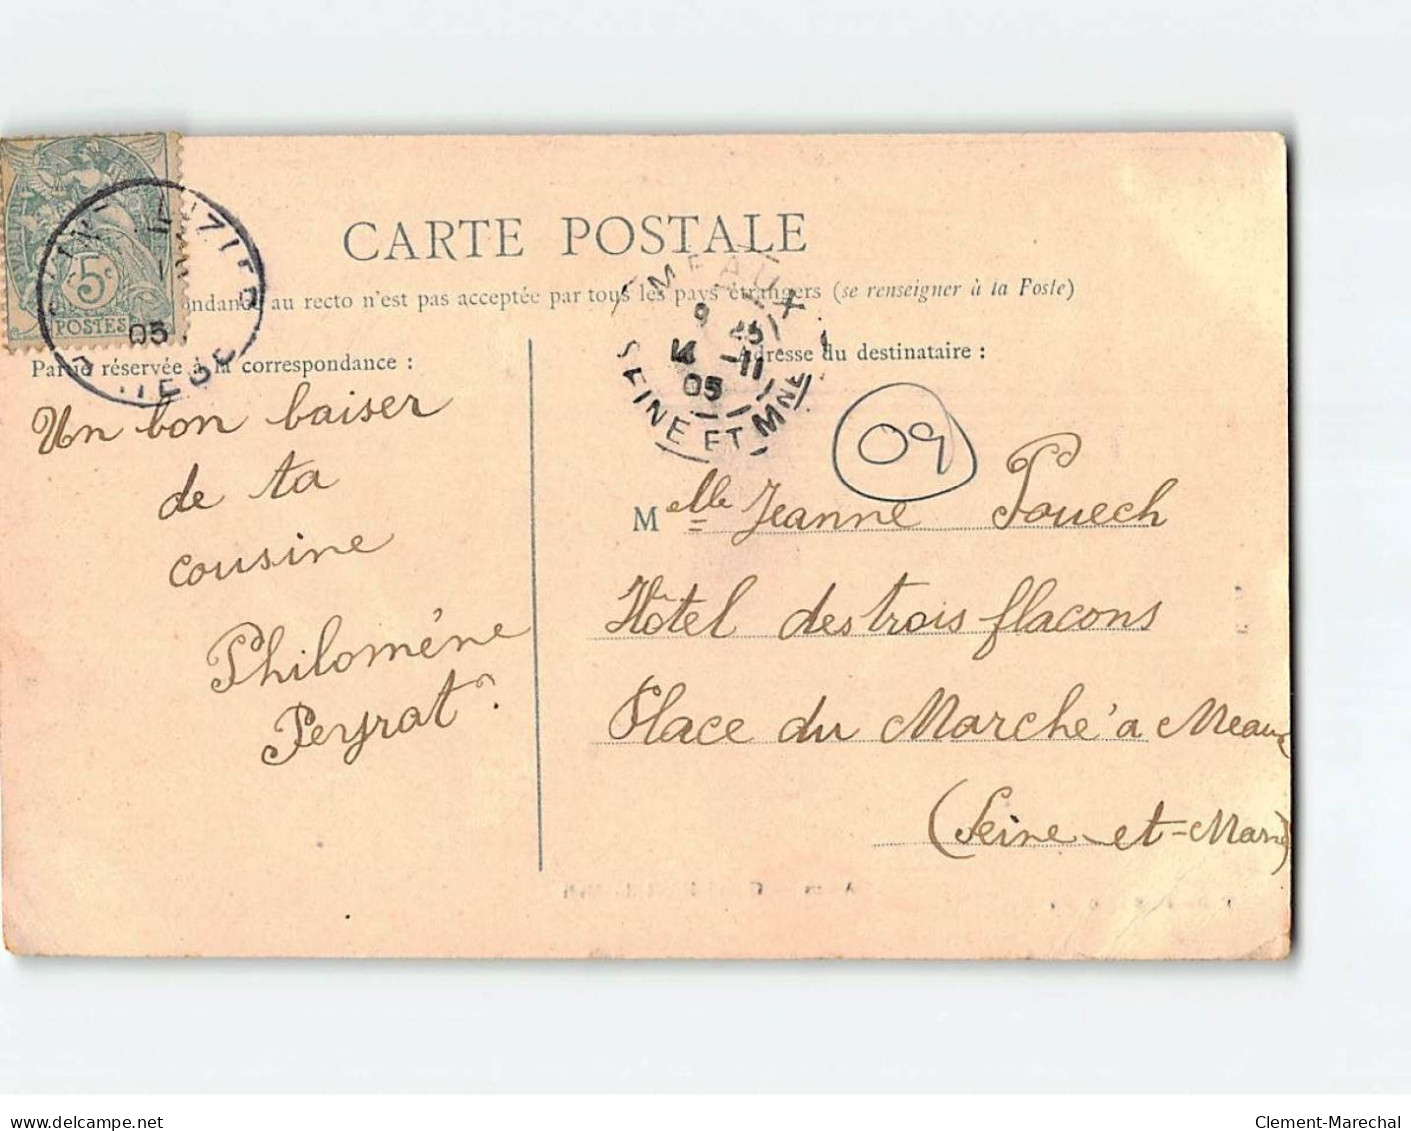 CARTE POSTALE
au recto n'est pas acceptée par tous les pays étrangers (se renseigner à la Poste)
5c
POSTES
05
MEAUX
9 25
14 -11
05
SEINE ET MNE
Partie réservée à la correspondance :
Adresse du destinataire :
09
Un bon baiser
de ta
cousine
Philomène
Peyrat
Melle Jeanne Pouech
Hôtel des trois flacons
Place du Marché à Meaux
(Seine-et-Marne)
delcampe.net
Clement-Marechal